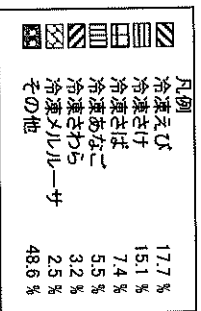 凡例
冷凍えび 17.7 %
冷凍さけ 15.1 %
冷凍さば 7.4 %
冷凍あなご 5.5 %
冷凍さわら 3.2 %
冷凍メルルーサ 2.5 %
その他 48.6 %